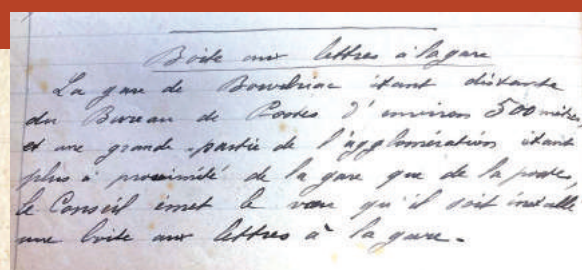 Boite aux lettres à la gare
La gare de Bourbriac étant distante
du Bureau de Postes d'environ 500 mètres
et une grande partie de l'agglomération étant
plus à proximité de la gare que de la poste,
le Conseil émet le vœu qu'il soit installé
une boite aux lettres à la gare.